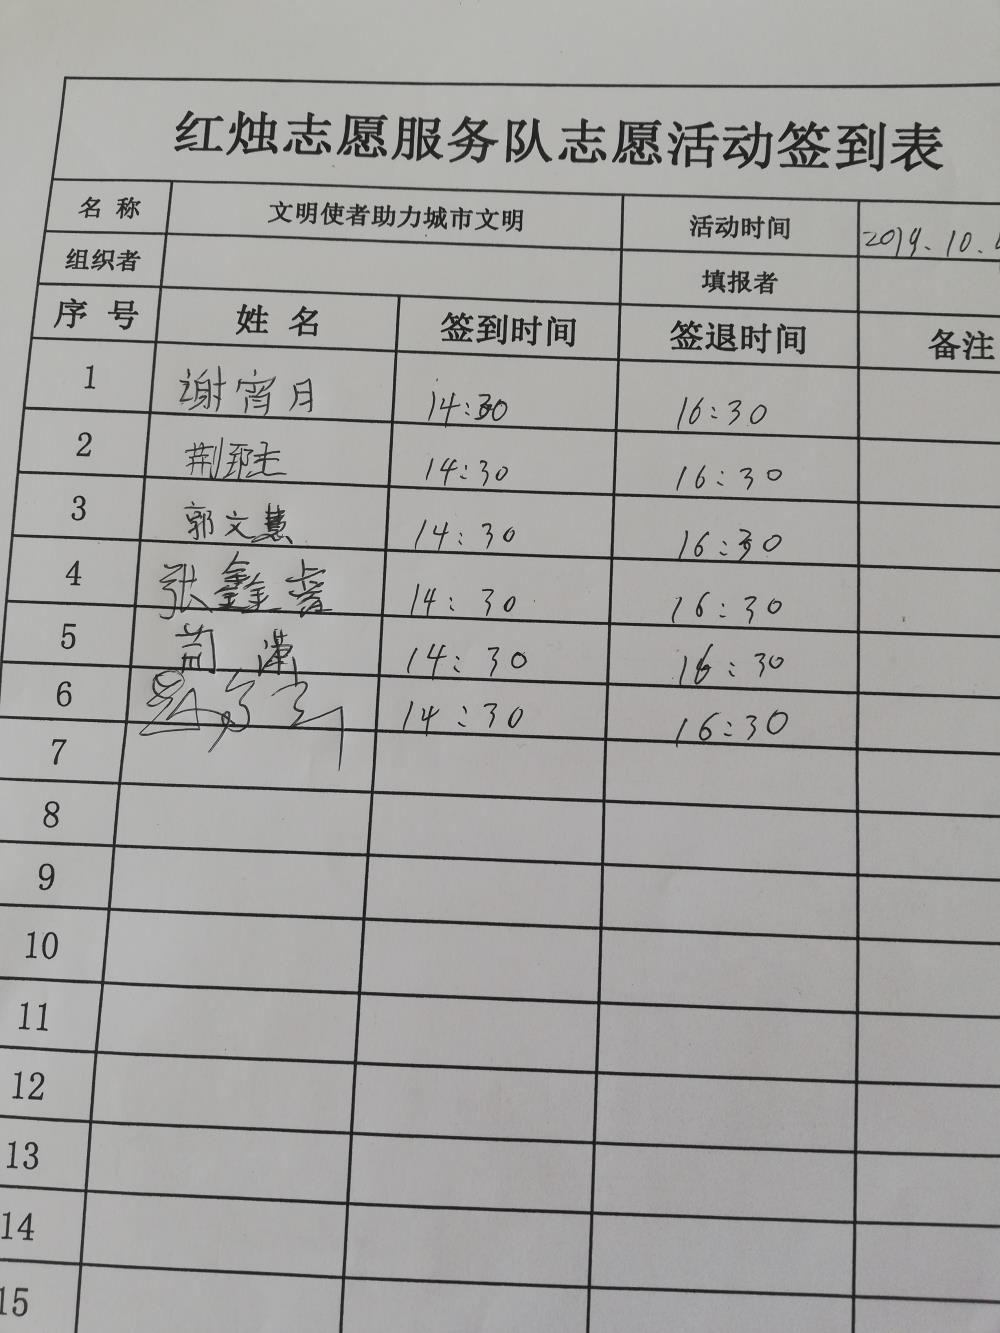 红烛志愿服务队志愿活动签到表
名 称 文明使者助力城市文明 活动时间 2019.10.
组织者 填报者
序 号 姓 名 签到时间 签退时间 备注
1 谢宵月 14:30 16:30
2 荆 14:30 16:30
3 郭文慧 14:30 16:30
4 张鑫睿 14:30 16:30
5 14:30 16:30
6 14:30 16:30
7
8
9
10
11
12
13
14
15